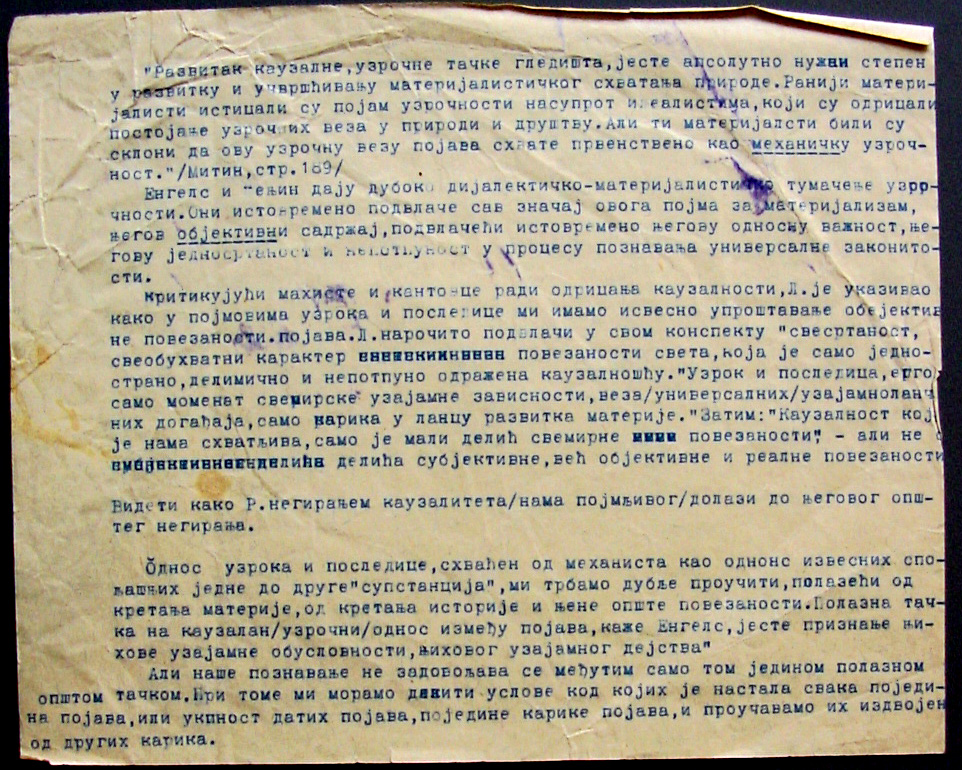 "Развитак каузалне,узрочне тачке гледишта,јесте апсолутно нужан степен
у развитку и учвршћивању материјалистичког схватања природе.Ранији матери-
јалисти истицали су појам узрочности насупрот идеалистима,који су одрицали
постојање узрочних веза у природи и друштву.Али ти материјалсти били су
склони да ову узрочну везу појава схвате првенствено као механичку узроч-
ност."/Митин,стр.189/
Енгелс и Лењин дају дубоко дијалектичко-материјалистичко тумачење узро-
чности.Они истовремено подвлаче сав значај овога појма за материјализам,
његов објективни садржај,подвлачећи истовремено његову односну важност,ње-
гову једностраност и непотпуност у процесу познавања универсалне законито-
сти.
Критикујући махисте и кантовце ради одрицања каузалности,Л.је указивао
како у појмовима узрока и последице ми имамо исвесно упроштавање објектив
не повезаности.појава.Л.нарочито подвлачи у свом конспекту "свестраност,
свеобухватни карактер повезаности света,која је само једно-
страно,делимично и непотпуно одражена каузалношћу."Узрок и последица,ерго
само моменат свемирске узајамне зависности,веза/универсалних/узајамноланч
них догађаја,само карика у ланцу развитка материје."Затим:"Каузалност кој
је нама схватљива,само је мали делић свемирне повезаности", - али не
делића субјективне,већ објективне и реалне повезаности
Видети како Р.негирањем каузалитета/нама појмљивог/долази до његовог опш-
тег негирања.
Однос узрока и последице,схваћен од механиста као однонс извесних спо-
љашњих једне до друге"супстанција",ми трбамо дубље проучити,полазећи од
кретања материје,од кретања историје и њене опште повезаности.Полазна тач-
ка на каузалан/узрочни/однос између појава,каже Енгелс,јесте признање њи-
хове узајамне обусловности,њиховог узајамног дејства"
Али наше познавање не задовољава се међутим само том једином полазном
општом тачком.При томе ми морамо услове код којих је настала свака поједи-
на појава,или укпност датих појава,поједине карике појава,и проучавамо их издвојен
од других карика.